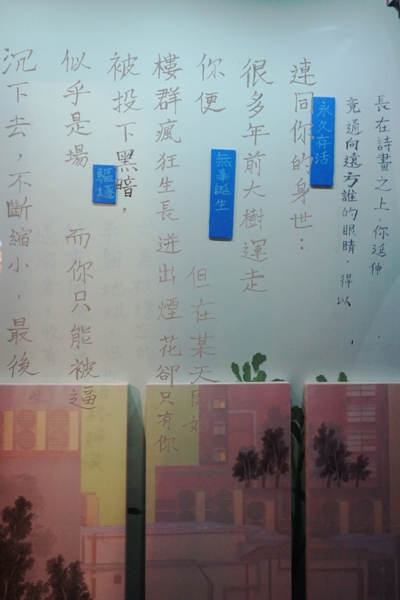 長在詩畫之上，你延伸，
竟通向遠方誰的眼睛，得以，
永久存活
連同你的身世：
很多年前大樹運走
你便
無辜誕生
但在某天
樓群瘋狂生長迸出煙花卻只有你
被投下黑暗，
似乎是場
驅
而你只能被逼
沉下去，不斷縮小，最後